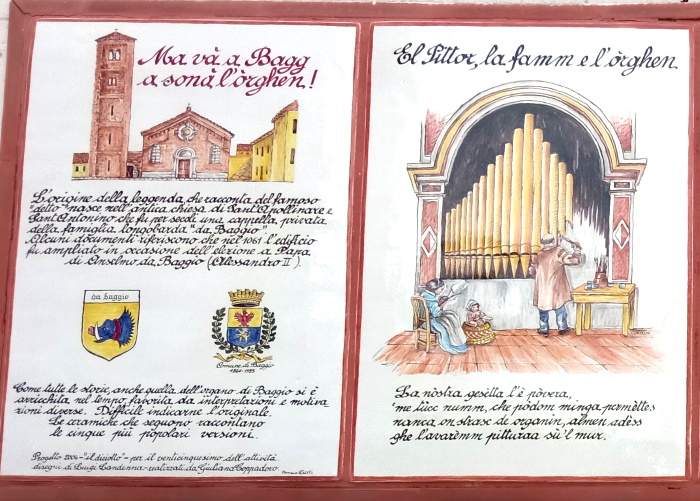 Ma và a Bagg
a sonà l'òrghen!
L'origine della leggenda, che racconta del famoso
"detto" nasce nell'antica chiesa di Sant'Apollinare e
Sant'Antonino che fu per secoli una cappella privata
della famiglia longobarda "da Baggio".
Alcuni documenti riferiscono che nel 1061 l'edificio
fu ampliato in occasione dell'elezione a Papa
di Anselmo da Baggio (Alessandro II).
da baggio
Comune di Baggio
Come tutte le storie, anche quella dell'organo di Baggio si è
arricchita nel tempo, favorita da interpretazioni e motiva
zioni diverse. Difficile indicarne l'originale.
Le ceramiche che seguono raccontano
le cinque più popolari versioni.
Progetto 2004 - "il diciotto" - per il venticinquesimo dell'attività
disegni di Luigi Landenna - realizzati da Giuliana Coppadoro.
El Pittor, la famm e l'òrghen
La nòstra gesetta l'è pòvera,
me tücc numm, che pòdom minga permèttes
nanca on strasc de organin, almen adèss
ghe l'avarèmm pitturaa sü'l mur.